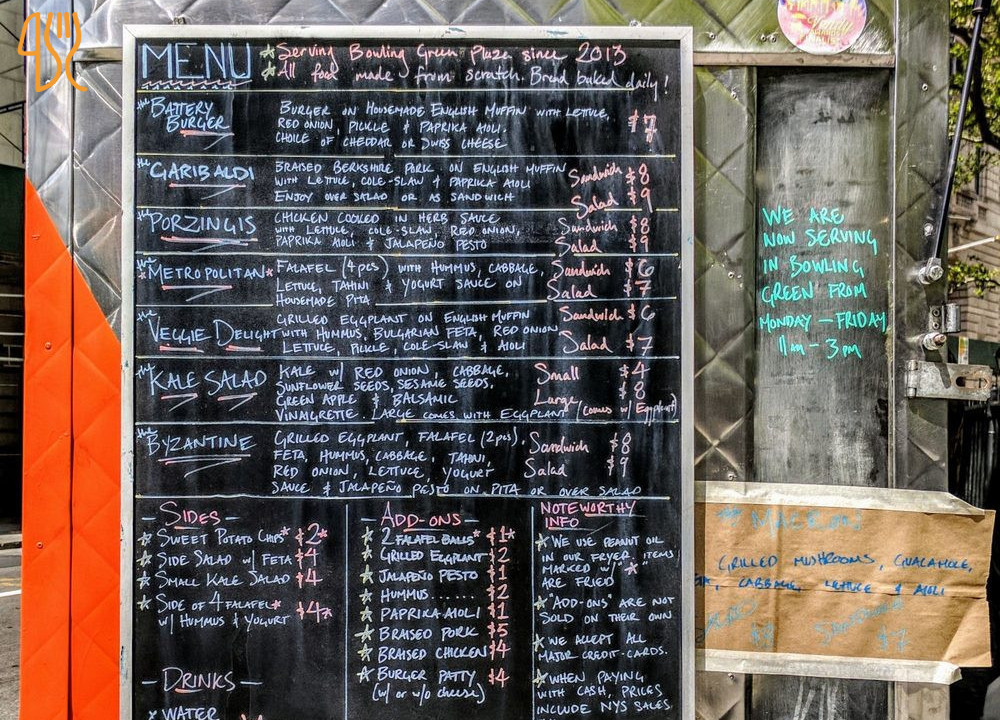 MENU
★ Serving Bowling Green Plaza since 2013
★ All food made from scratch. Bread baked daily!
the BATTERY BURGER
BURGER ON HOUSEMADE ENGLISH MUFFIN WITH LETTUCE,
RED ONION, PICKLE & PAPRIKA AIOLI.
CHOICE OF CHEDDAR OR SWISS CHEESE
$7
the GARIBALDI
BRAISED BERKSHIRE PORK ON ENGLISH MUFFIN
WITH LETTUCE, COLE-SLAW & PAPRIKA AIOLI
ENJOY OVER SALAD OR AS SANDWICH
Sandwich $8
Salad $9
the PORZINGIS
CHICKEN COOKED IN HERB SAUCE
WITH LETTUCE, COLE-SLAW, RED ONION,
PAPRIKA AIOLI & JALAPEÑO PESTO
Sandwich $8
Salad $9
the *METROPOLITAN*
FALAFEL (4 pcs) WITH HUMMUS, CABBAGE,
LETTUCE, TAHINI & YOGURT SAUCE ON
HOUSEMADE PITA
Sandwich $6
Salad $7
the VEGGIE DELIGHT
GRILLED EGGPLANT ON ENGLISH MUFFIN
WITH HUMMUS, BULGARIAN FETA, RED ONION
LETTUCE, PICKLE, COLE-SLAW & AIOLI
Sandwich $6
Salad $7
the KALE SALAD
KALE W/ RED ONION, CABBAGE,
SUNFLOWER SEEDS, SESAME SEEDS,
GREEN APPLE & BALSAMIC
VINAIGRETTE. LARGE COMES WITH EGGPLANT
Small $4
Large $8
(comes w/ Eggplant)
the BYZANTINE
GRILLED EGGPLANT, FALAFEL (2pcs),
FETA, HUMMUS, CABBAGE, TAHINI,
RED ONION, LETTUCE, YOGURT
SAUCE & JALAPEÑO PESTO ON PITA OR OVER SALAD
Sandwich $8
Salad $9
- SIDES -
★ SWEET POTATO CHIPS* $2*
★ SIDE SALAD W/ FETA $4
★ SMALL KALE SALAD $4
★ SIDE OF 4 FALAFEL* $4*
W/ HUMMUS & YOGURT
- DRINKS -
★ WATER
- ADD-ONS -
★ 2 FALAFEL BALLS* $1*
★ GRILLED EGGPLANT $2
★ JALAPEÑO PESTO $1
★ HUMMUS...... $2
★ PAPRIKA AIOLI $1
★ BRAISED PORK $5
★ BRAISED CHICKEN $4
★ BURGER PATTY $4
(w/ or w/o cheese)
NOTEWORTHY
INFO
★ WE USE PEANUT OIL
IN OUR FRYER. ITEMS
MARKED W/ "*"
ARE FRIED
★ "ADD-ONS" ARE NOT
SOLD ON THEIR OWN
★ WE ACCEPT ALL
MAJOR CREDIT-CARDS.
★ WHEN PAYING
WITH CASH, PRICES
INCLUDE NYS SALES
WE ARE
NOW SERVING
IN BOWLING
GREEN FROM
MONDAY - FRIDAY
11 AM - 3 PM
GRILLED MUSHROOMS, GUACAMOLE,
CABBAGE, LETTUCE & AIOLI
SANDWICH
$7